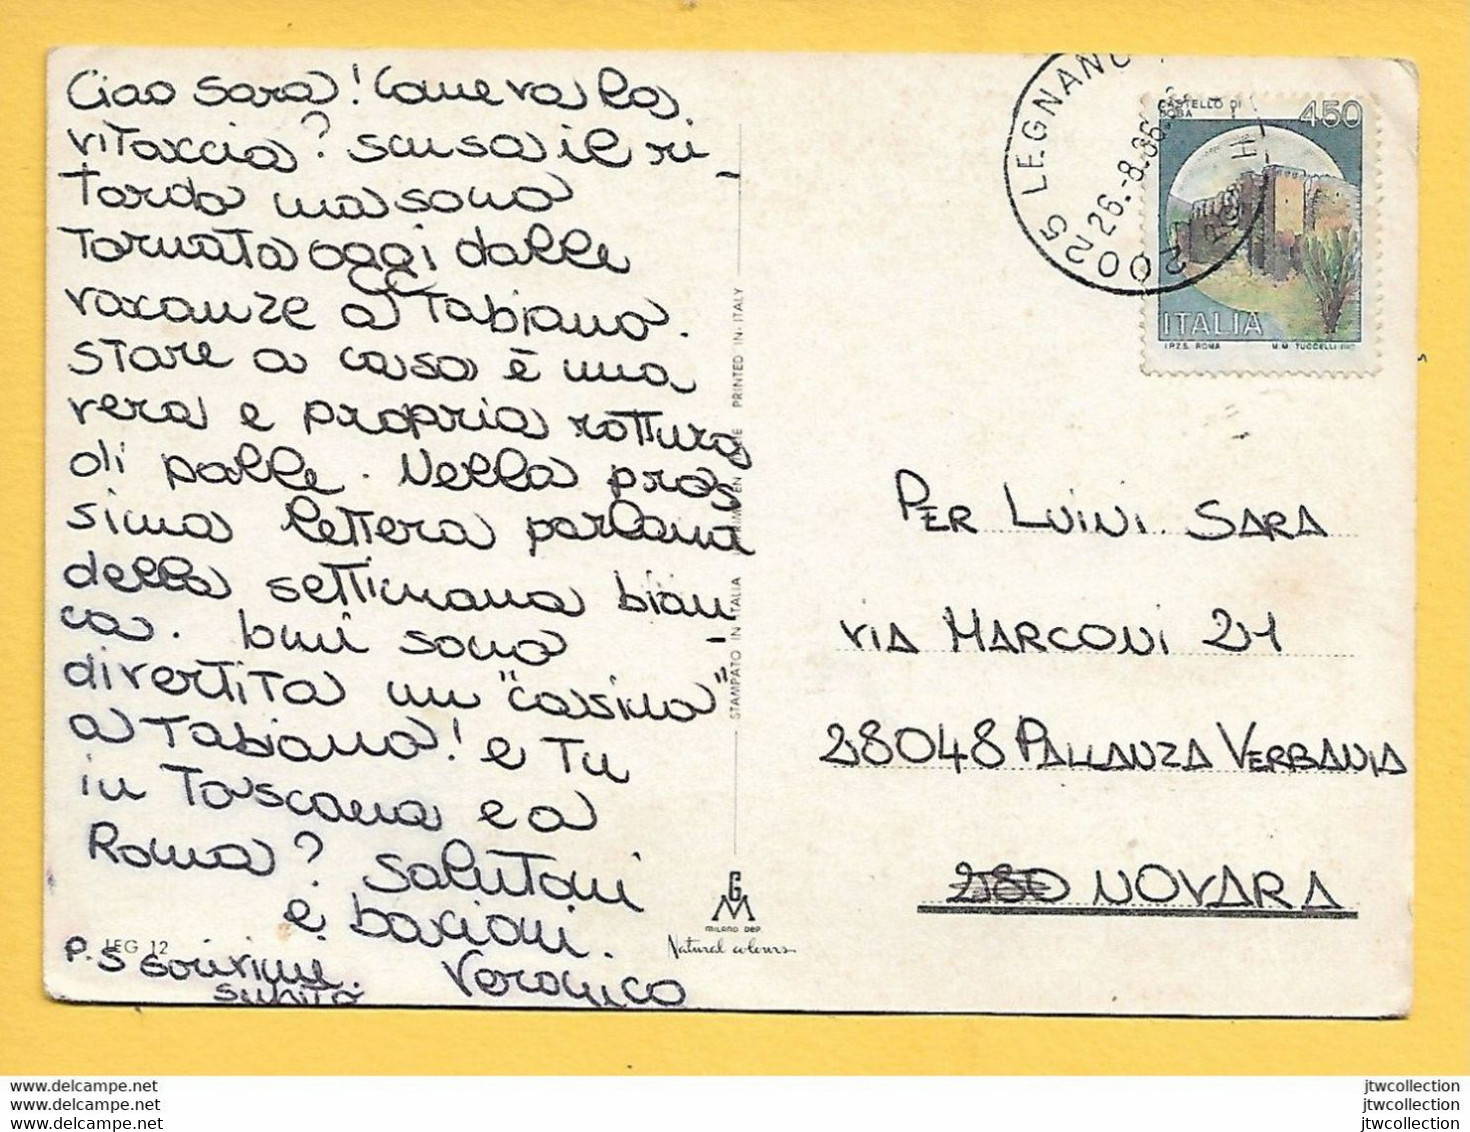 Ciao Sara! Come va la
vitaccia? Scusa il ri-
tardo ma sono
tornata oggi dalle
vacanze a Tabiano.
Stare a casa è una
vera e propria rottura
di palle. Nella pros
sima lettera parliamo
della settimana bian-
ca. Io mi sono
divertita un "casino"
a Tabiano! e tu
in Toscana e a
Roma? Salutoni
e bacioni.
Veronica
P.S scrivimi
subito
LEG 12
STAMPATO IN ITALIA
PRINTED IN ITALY
GM
MILANO DEP.
Natural colours
20025 LEGNANO
26.-8.86
CASTELLO DI
450
ITALIA
I.P.Z.S. ROMA
M.M. TUCCELLI
PER LUINI SARA
VIA MARCONI 21
28048 PALLANZA VERBANIA
280 NOVARA
www.delcampe.net
www.delcampe.net
www.delcampe.net
jtwcollection
jtwcollection
jtwcollection